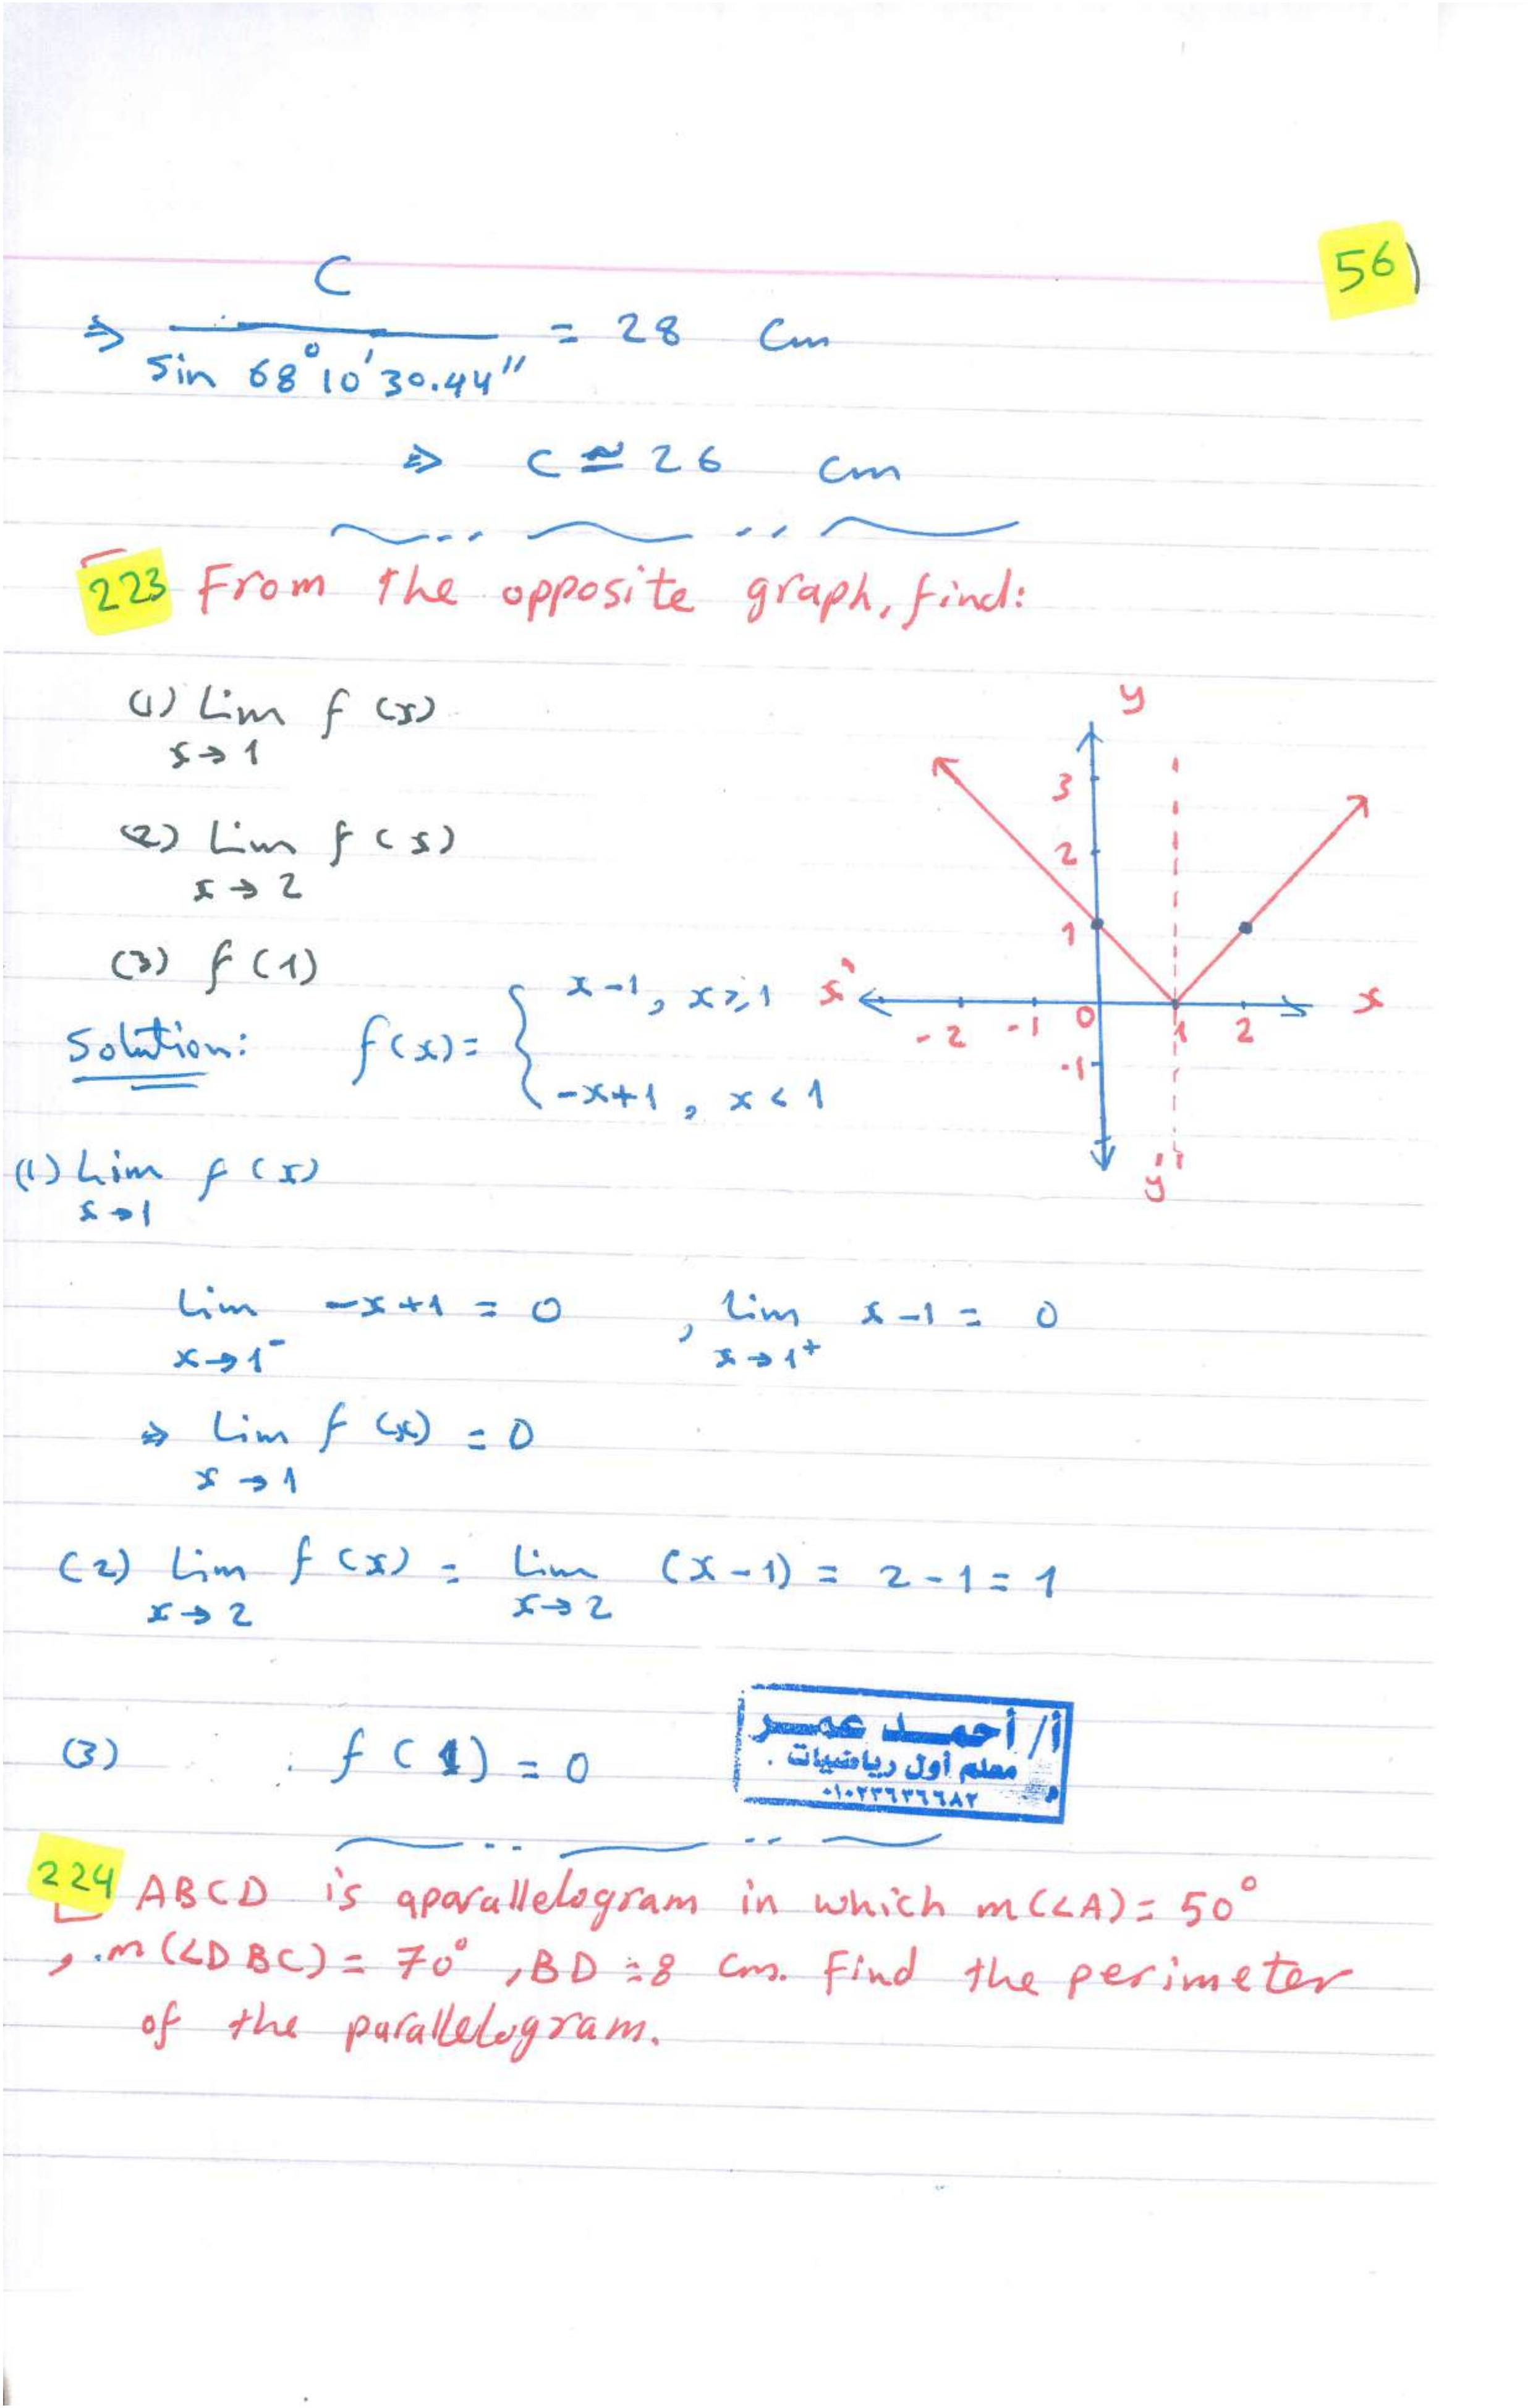 56)
C
⇒ ───────── = 28 Cm
Sin 68°10'30.44"
⇒ C ≃ 26 Cm
223 From the opposite graph, find:
(1) Lim f (x)
x→1
(2) Lim f (x)
x→2
(3) f (1)
y
3
2
1
x' -2 -1 0 1 2 x
-1
y'
Solution: f(x) = { x-1, x⩾1
-x+1, x<1
(1) Lim f (x)
x→1
Lim -x+1 = 0 , Lim x-1 = 0
x→1⁻ x→1⁺
⇒ Lim f (x) = 0
x→1
(2) Lim f (x) = Lim (x-1) = 2-1=1
x→2 x→2
(3) f (1) = 0
أ/ أحمد عمر
معلم أول رياضيات
م ٠١٠٢٣٦٣٦٦٨٢
224 ABCD is aparallelogram in which m(<A)= 50°
, m(<DBC)= 70° , BD=8 cm. Find the perimeter
of the parallelogram.